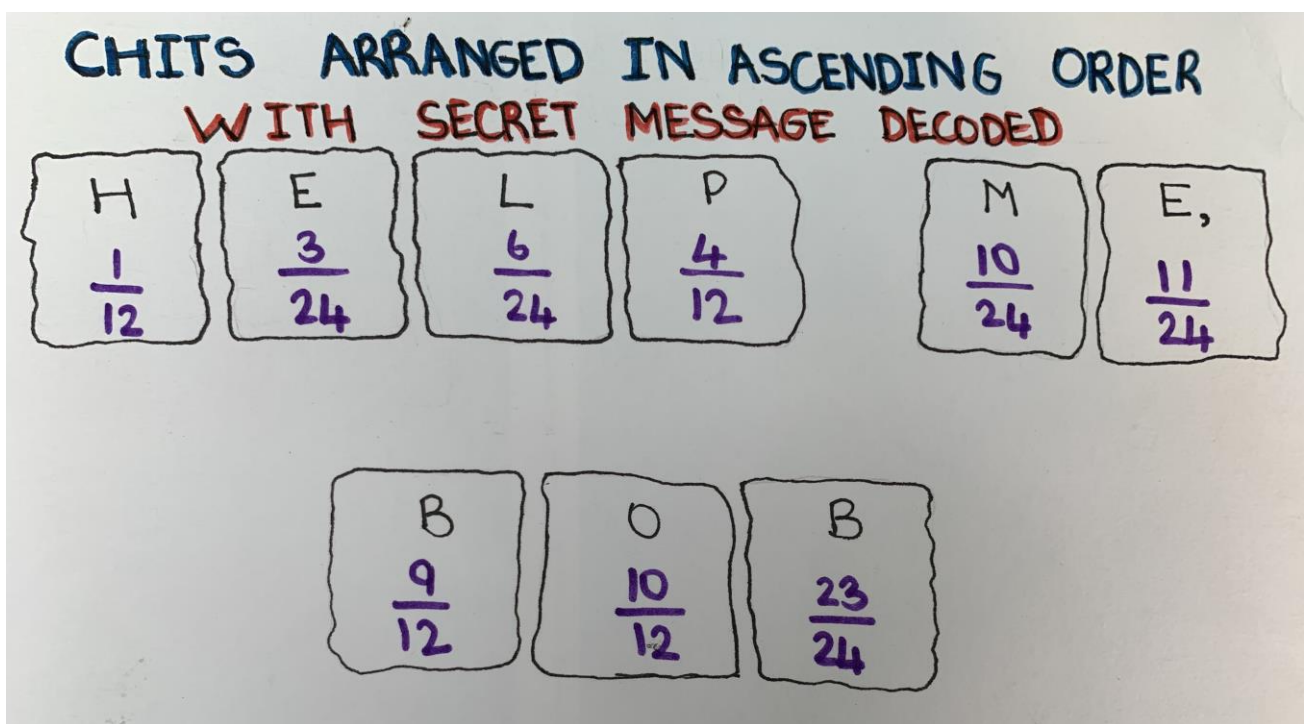 CHITS ARRANGED IN ASCENDING ORDER
WITH SECRET MESSAGE DECODED
H E L P M E,
1/12 3/24 6/24 4/12 10/24 11/24
B O B
9/12 10/12 23/24